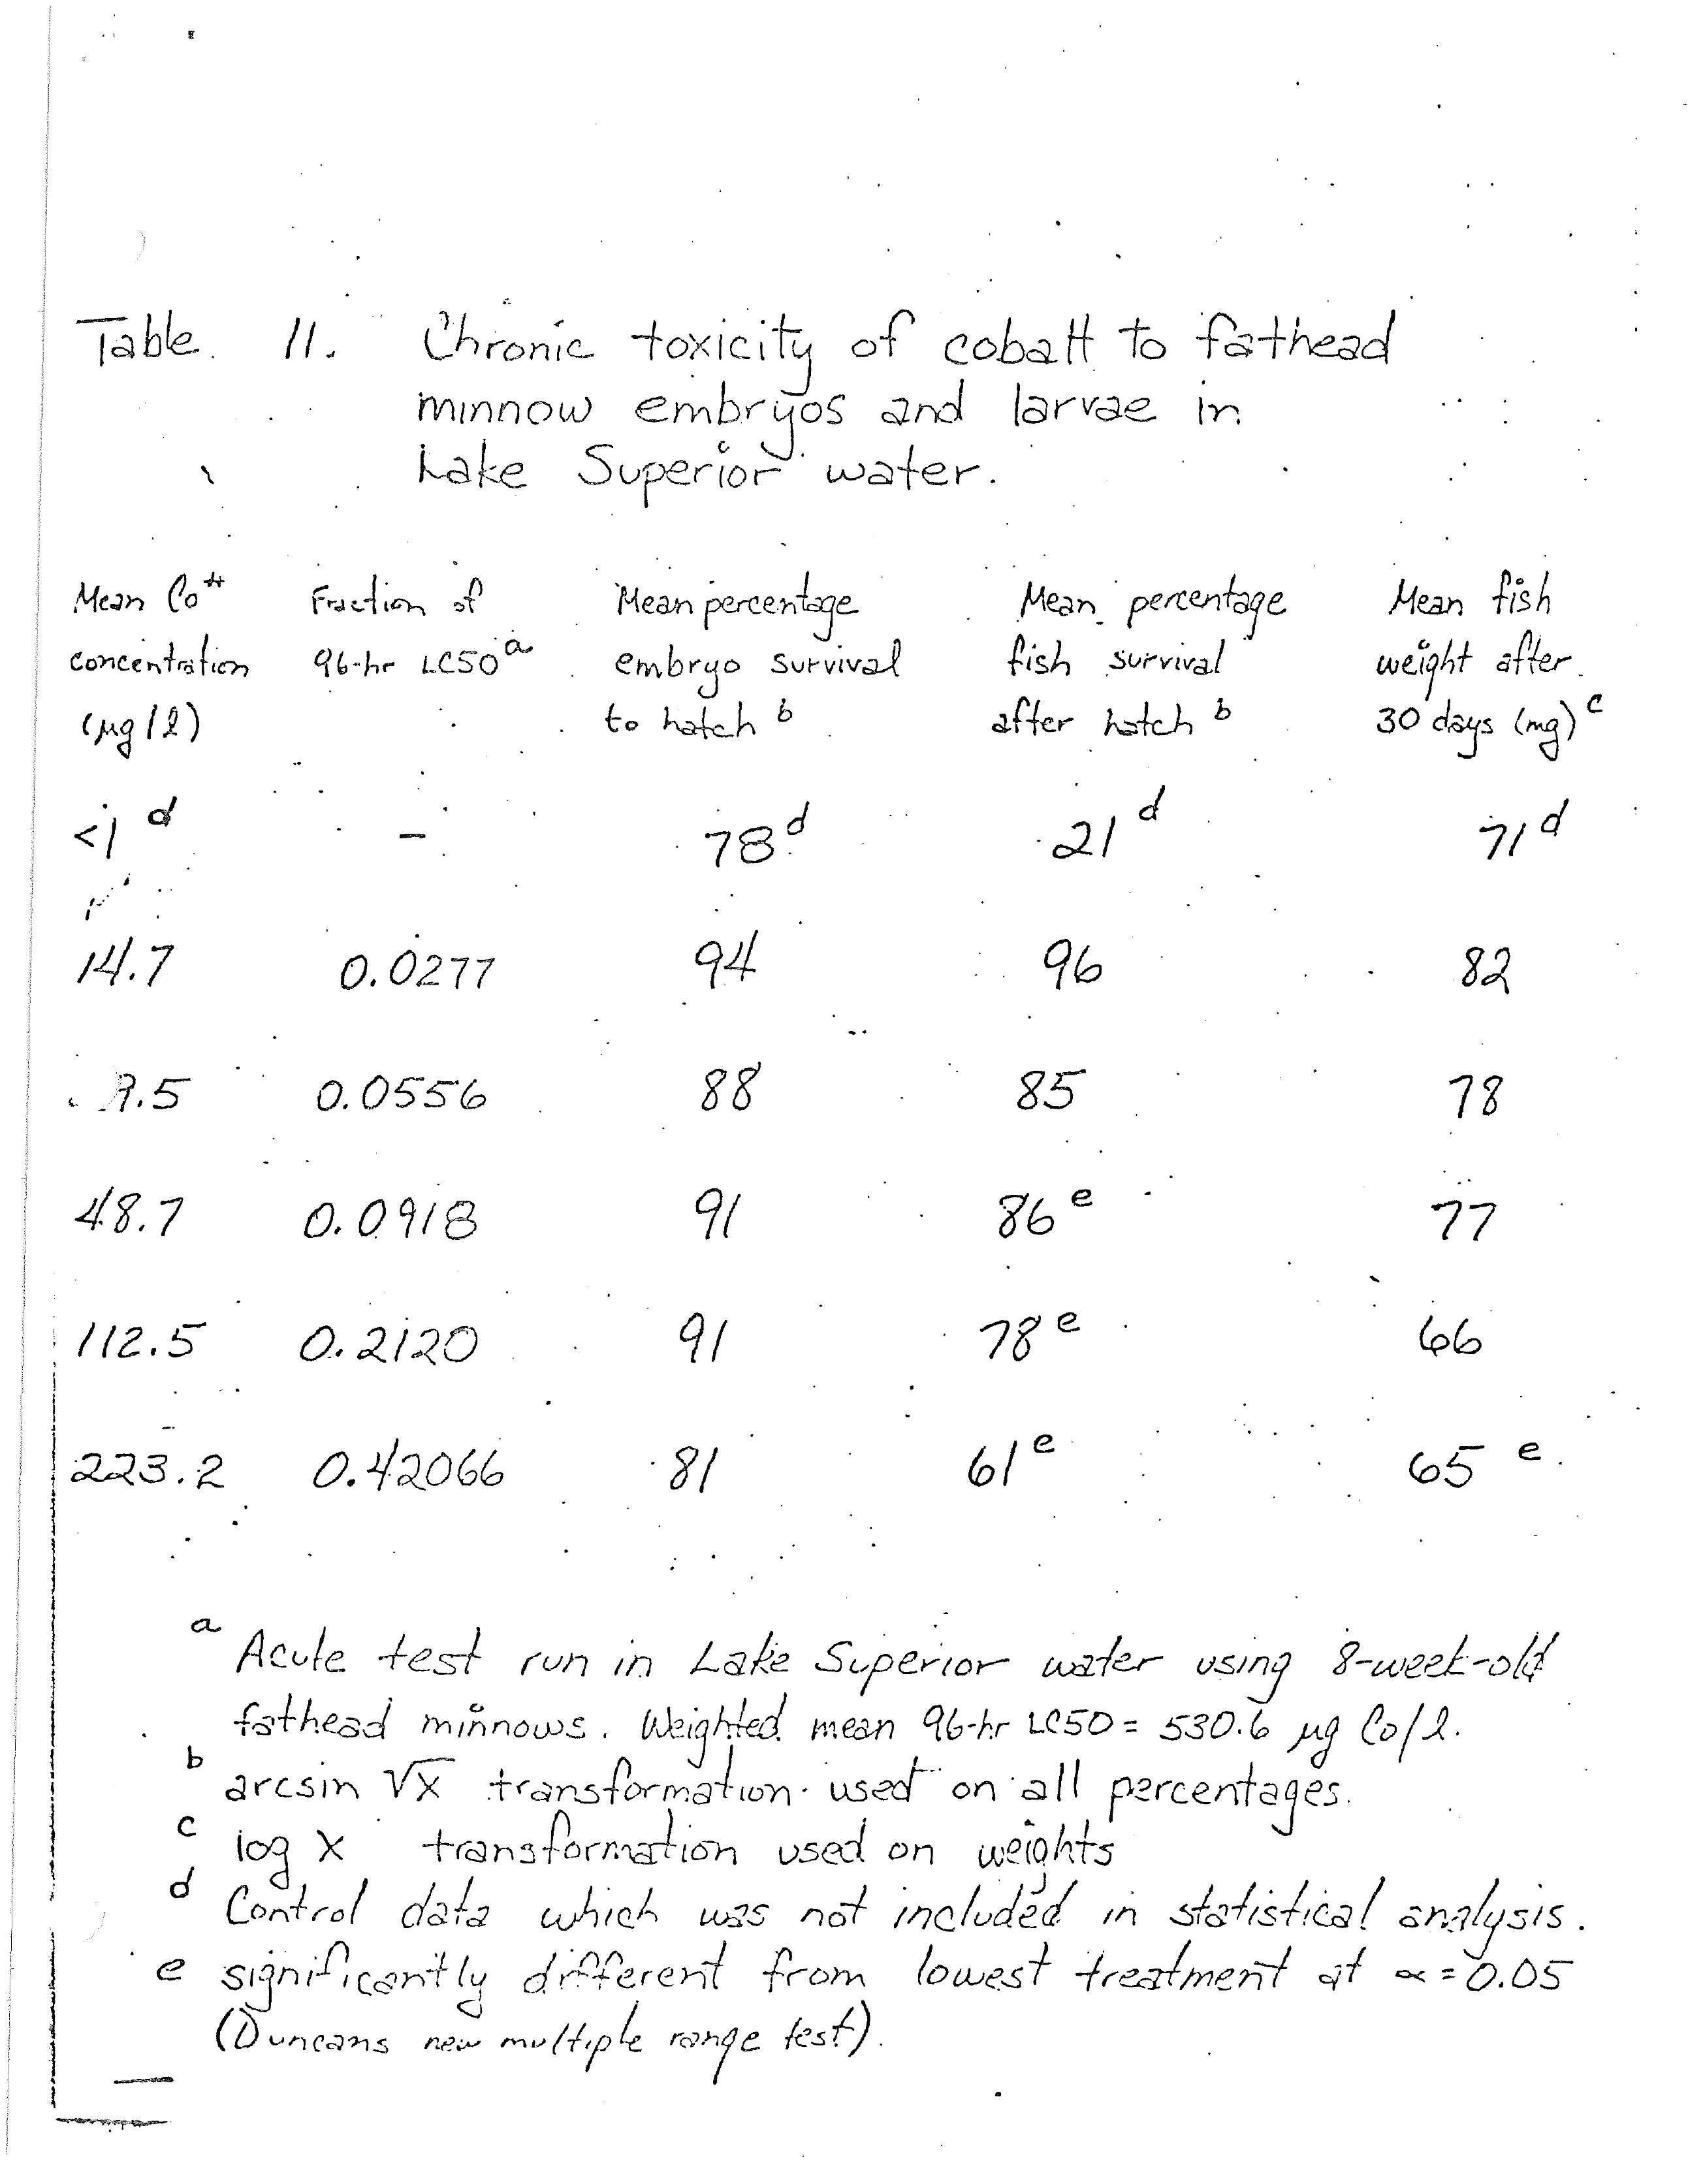 Table 11. Chronic toxicity of cobalt to fathead
minnow embryos and larvae in
Lake Superior water.
Mean Co⁺⁺ Fraction of Mean percentage Mean percentage Mean fish
concentration 96-hr LC50ᵃ embryo survival fish survival weight after
(µg/l) to hatch ᵇ after hatch ᵇ 30 days (mg)ᶜ
<1 ᵈ - 78ᵈ 21ᵈ 71ᵈ
14.7 0.0277 94 96 82
9.5 0.0556 88 85 78
48.7 0.0918 91 86ᵉ 77
112.5 0.2120 91 78ᵉ 66
223.2 0.42066 81 61ᵉ 65ᵉ
a Acute test run in Lake Superior water using 8-week-old
fathead minnows. Weighted mean 96-hr LC50 = 530.6 µg Co/l.
b arcsin √x transformation used on all percentages.
c log x transformation used on weights
d Control data which was not included in statistical analysis.
e significantly different from lowest treatment at α = 0.05
(Duncans new multiple range test).